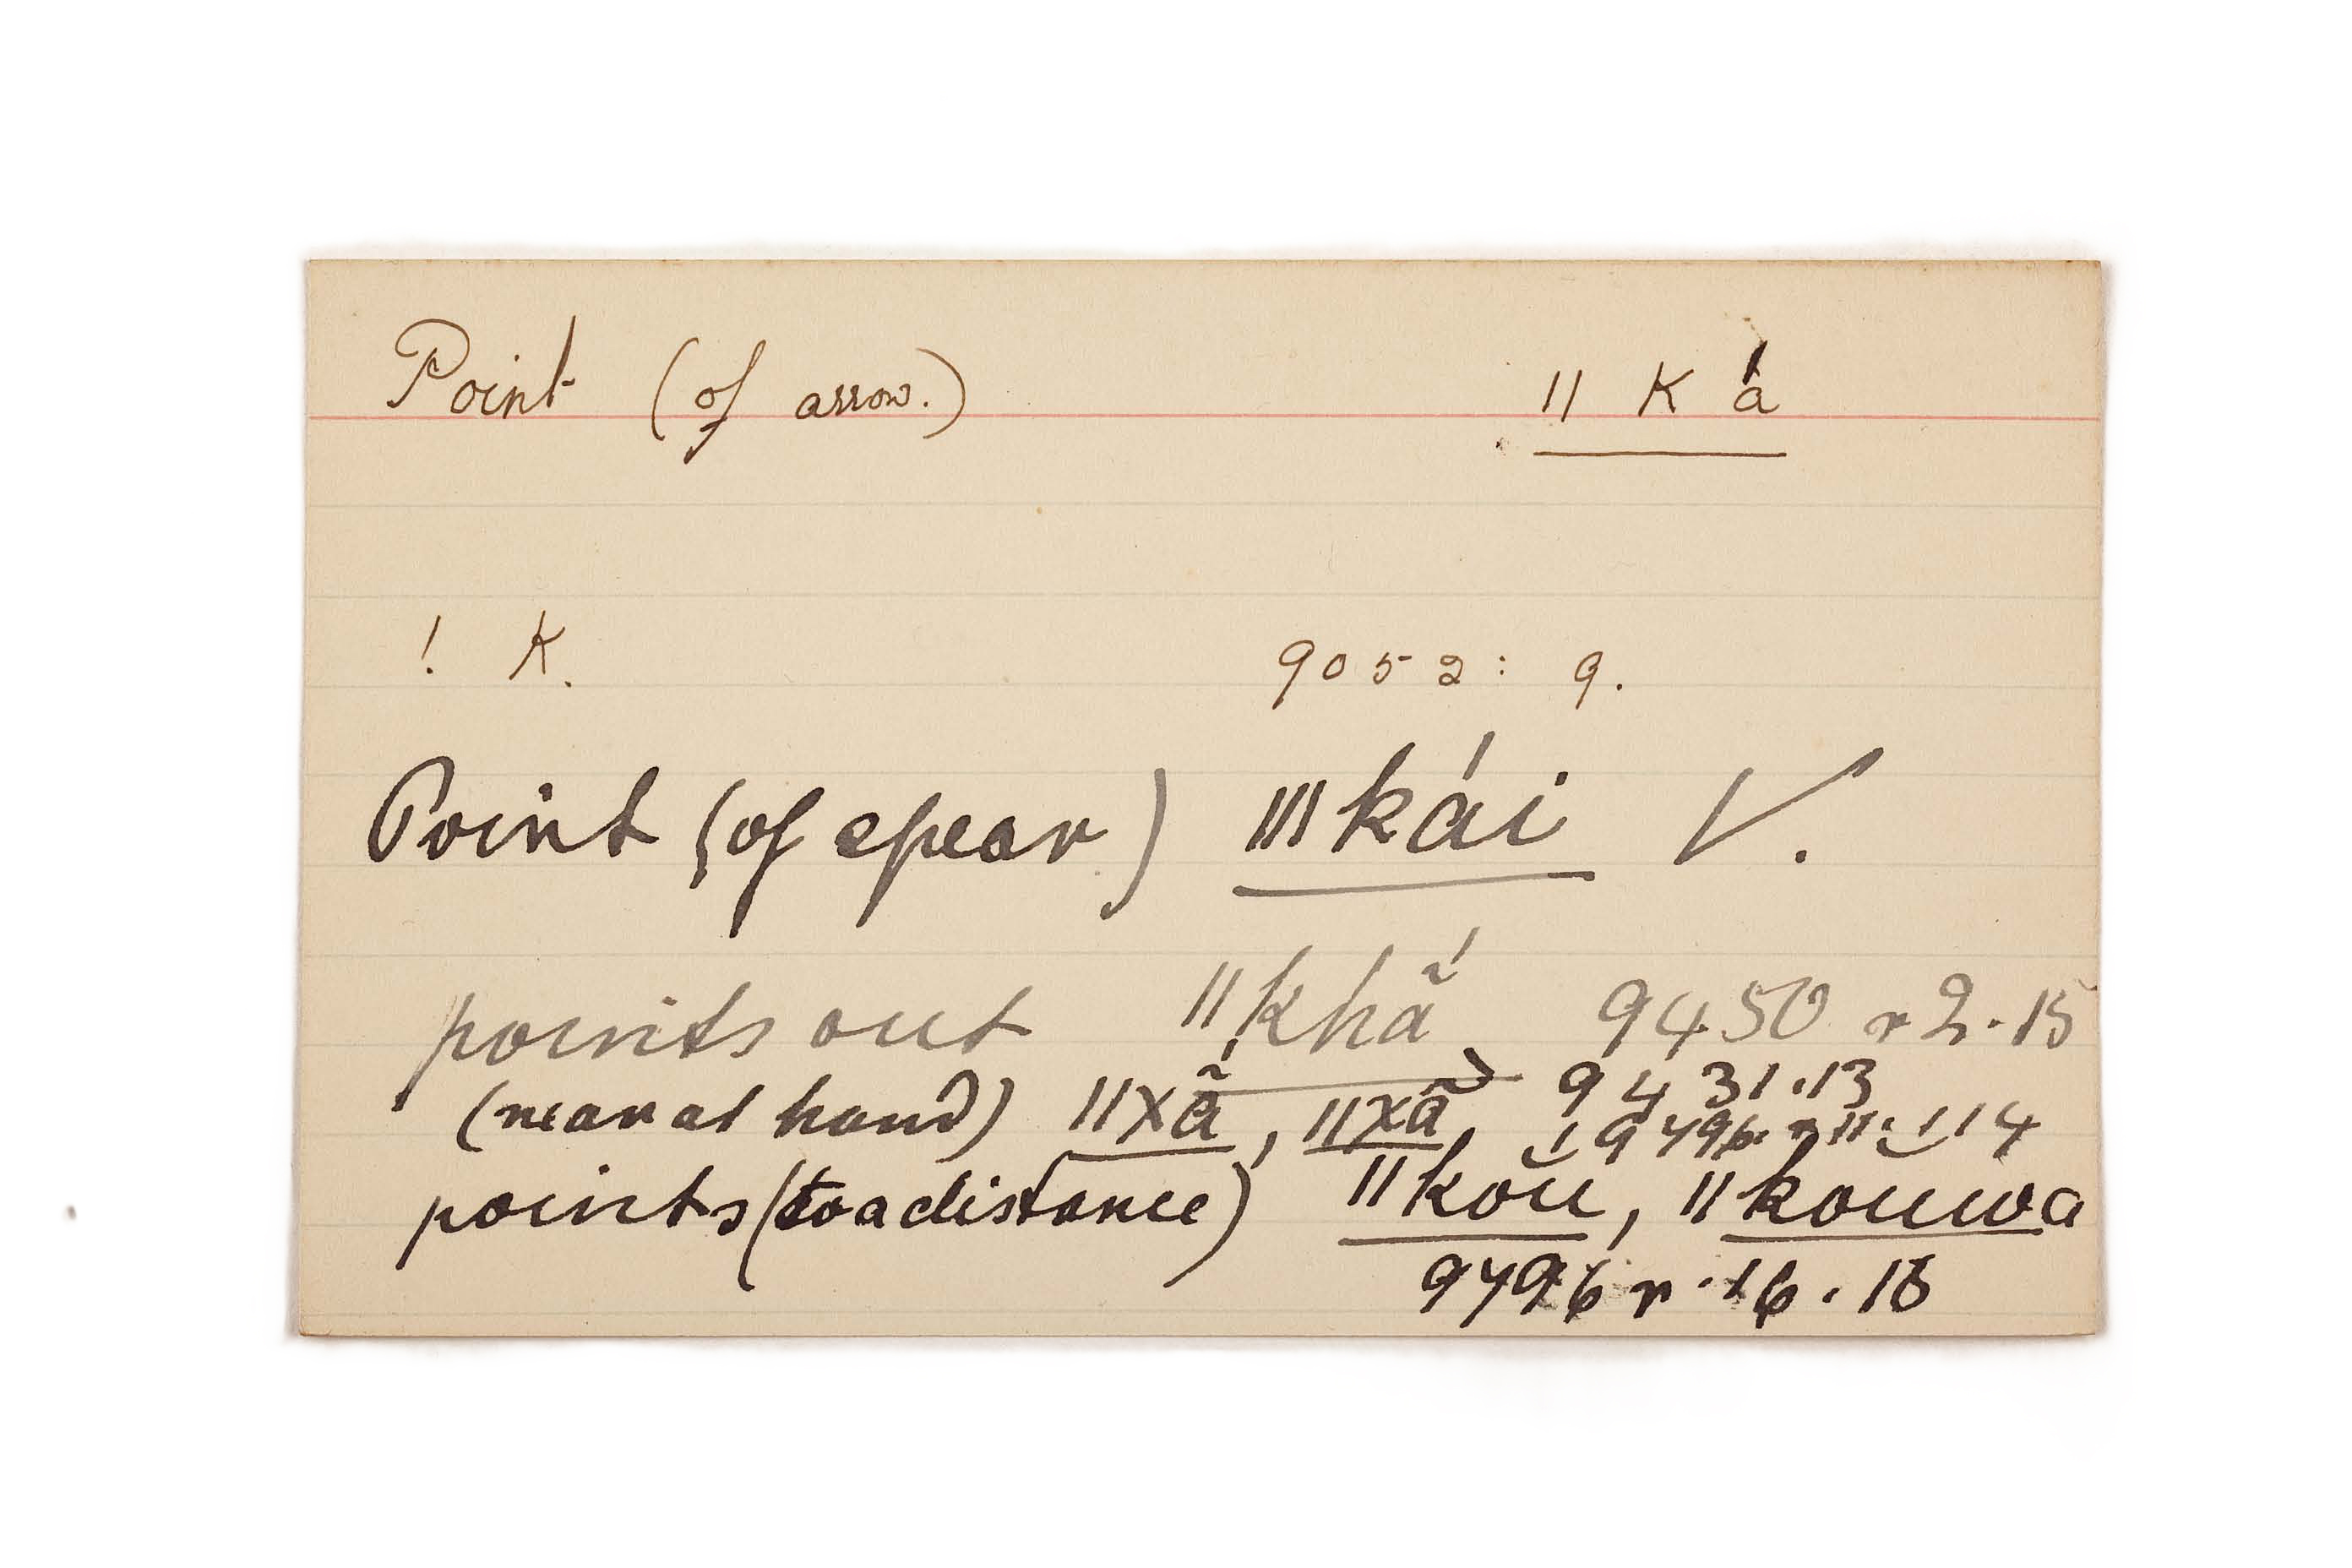 Point (of arrow.) ǁ K á
! K. 9052: 9.
Point (of spear) ǀǀǀkái V.
points out ǁkhã́ 9450 r 2.15
(near at hand) ǁxã́, ǁxã, 9431.13
9496 r 11. 114
points (to a distance) ǁkoŭ, ǁkouwa
9496 r. 16. 15